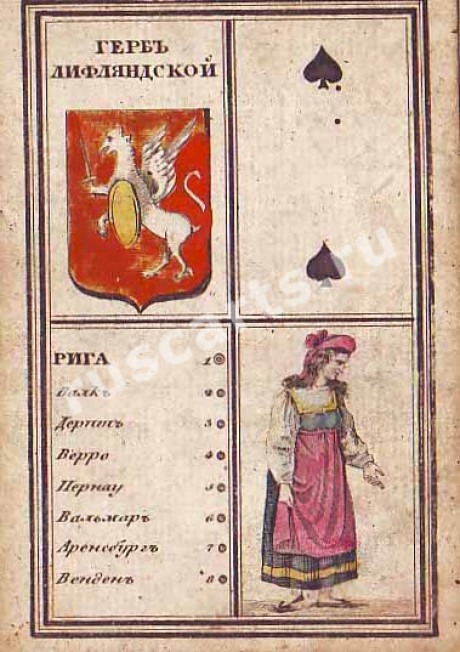 ГЕРБЪ
ЛИФЛЯНДСКОЙ
РИГА 1
Валкъ 2
Дерптъ 3
Верро 4
Пернау 5
Вальмаръ 6
Аренсбургъ 7
Венденъ 8
ruscarts.ru